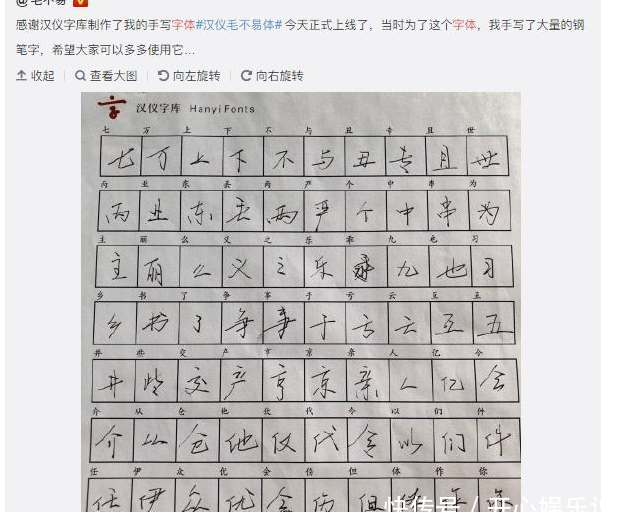 @毛不易
感谢汉仪字库制作了我的手写字体#汉仪毛不易体# 今天正式上线了，当时为了这个字体，我手写了大量的钢
笔字，希望大家可以多多使用它...
收起 查看大图 向左旋转 向右旋转
汉仪字库 Hanyi Fonts
七 万 上 下 不 与 丑 专 且 世
七 万 上 下 不 与 丑 专 且 世
丙 业 东 丢 两 严 个 中 串 为
丙 业 东 丢 两 严 个 中 串 为
主 丽 么 义 之 乐 乘 九 也 习
主 丽 么 义 之 乐 乘 九 也 习
乡 书 了 争 事 于 亏 云 互 五
乡 书 了 争 事 于 亏 云 互 五
井 些 交 产 亨 京 亲 人 亿 今
井 些 交 产 亨 京 亲 人 亿 会
介 从 仓 他 仗 代 令 以 们 件
介 从 仓 他 仪 代 令 以 们 件
任 伊 众 优 会 传 但 体 作 你
任 伊 众 优 会 伤 但
快传号 / 开心娱乐说